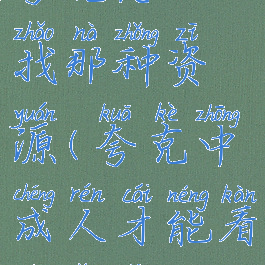 zhǎo nà zhǒng zī
找那种资
yuán kuā kè zhōng
源(夸克中
chéng rén cái néng kàn
成人才能看